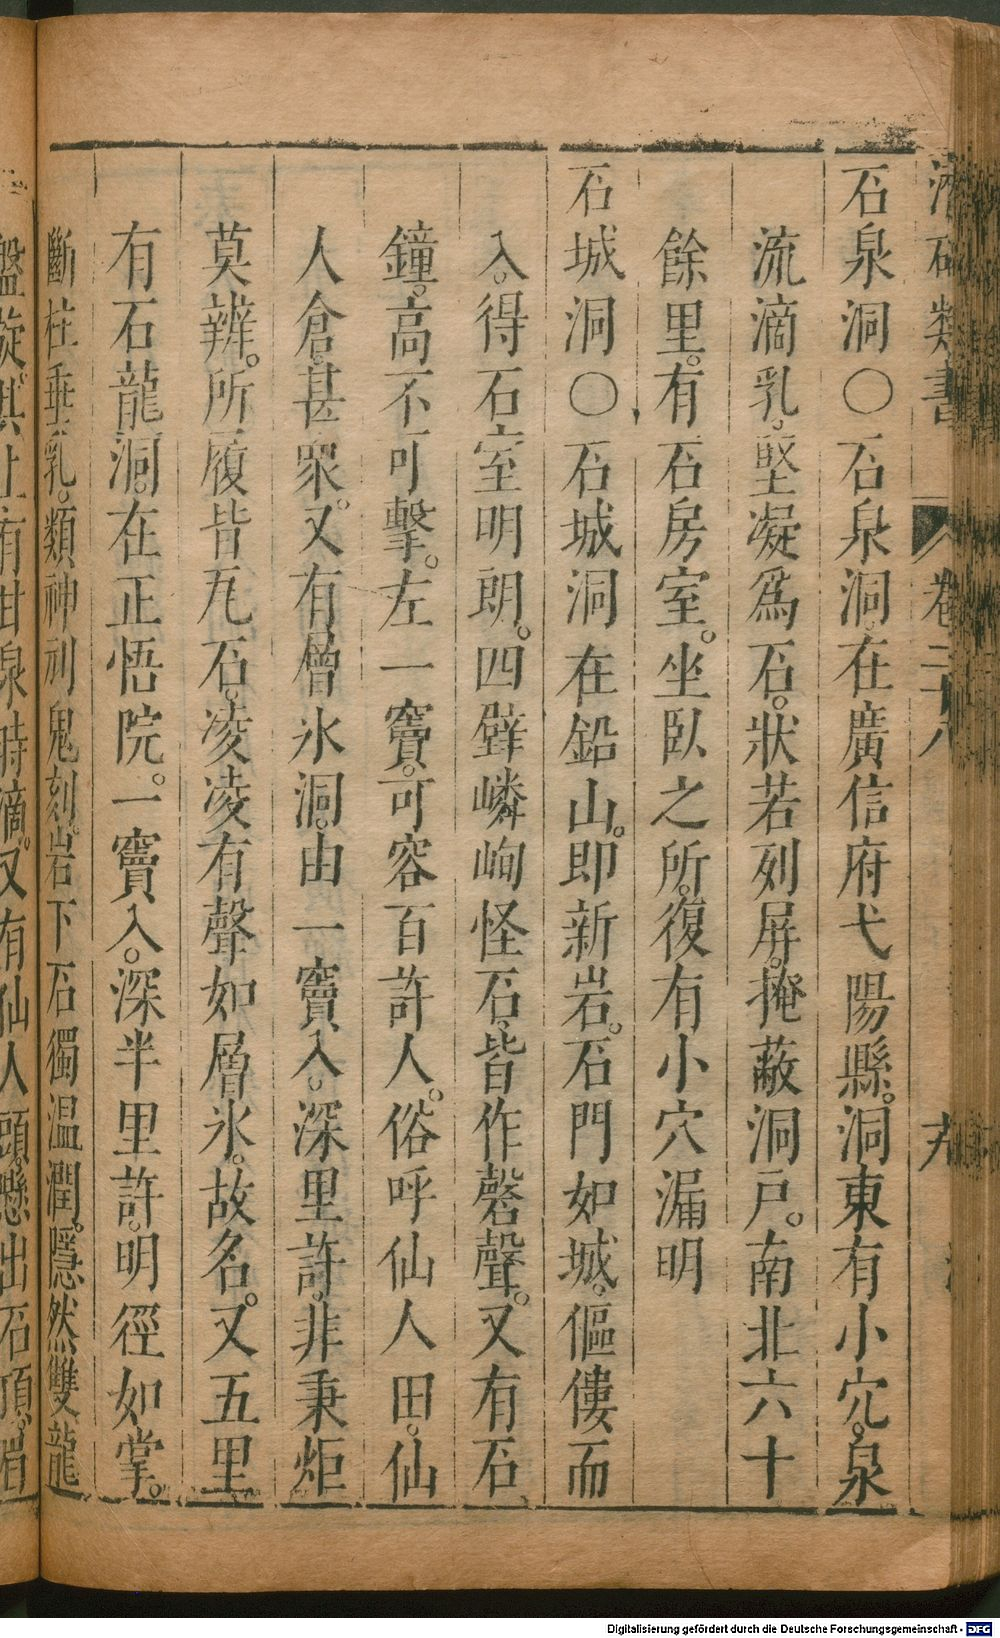 類書 卷二十八
石泉洞〇石泉洞在廣信府弋陽縣。洞東有小穴。泉
流滴乳。堅凝爲石。狀若列屏。掩蔽洞戸。南北六十
餘里。有石房室。坐臥之所。復有小穴漏明
石城洞〇石城洞在鉛山。卽新岩。石門如城。傴僂而
入。得石室明朗。四壁嶙峋怪石。皆作磬聲。又有石
鐘。高不可擊。左一竇。可容百許人。俗呼仙人田。仙
人倉。甚衆。又有層氷洞。由一竇入。深里許。非秉炬
莫辨。所履皆瓦石。凌凌有聲如層氷。故名。又五里
有石龍洞。在正悟院。一竇入。深半里許。明徑如掌。
斷柱垂乳。類神刓鬼刻。岩下石獨温潤。隱然雙龍
盤旋。其上有甘泉時滴。又有仙人頭。懸出石頂。眉
Digitalisierung gefördert durch die Deutsche Forschungsgemeinschaft - DFG